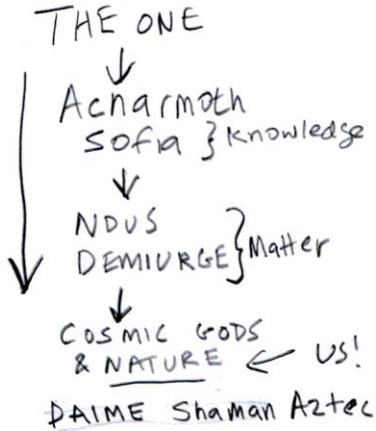 THE ONE
Acnarmoth
Sofia } Knowledge
NOUS
DEMIURGE } Matter
COSMIC GODS
& NATURE ← US!
DAIME Shaman Aztec